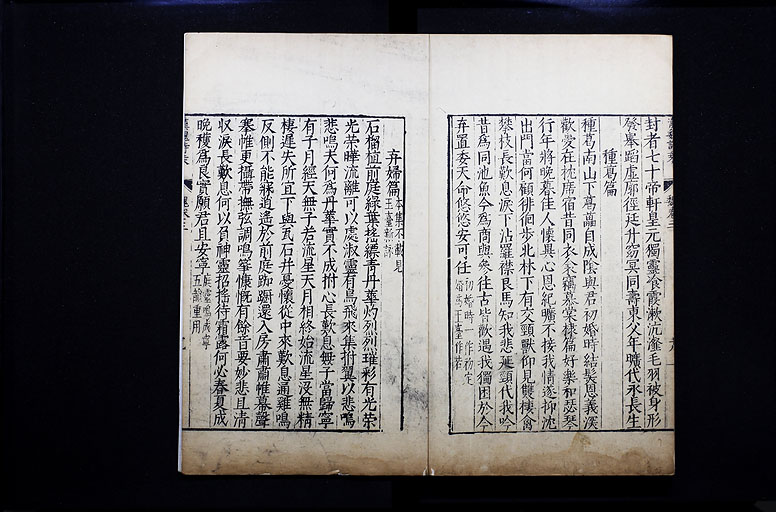 封者七十帝軒皇元獨靈飡霞漱沆瀣毛羽被身形
發舉蹈虛廓徑廷升窈冥同壽東父年曠代永長生
種葛篇
種葛南山下葛藟自成陰與君初婚時結髮恩義深
歡愛在枕席宿昔同衣衾竊慕棠棣篇好樂和瑟琴
行年將晚暮佳人懷異心恩紀曠不接我情遂抑沈
出門當何顧徘徊步北林下有交頸獸仰見雙棲禽
攀枝長歎息淚下沾羅襟良馬知我悲延頸代我吟
昔為同池魚今為商與參往古皆歡遇我獨困於今
弃置委天命悠悠安可任
弃婦篇本集不載見玉臺新詠
石榴植前庭綠葉搖縹青丹華灼烈烈璀彩有光榮
光榮曄流離可以處淑靈有鳥飛來集拊翼以悲鳴
悲鳴夫何為丹華實不成拊心長歎息無子當歸寧
有子月經天無子若流星天月相終始流星沒無精
棲遲失所宜下與瓦石并憂懷從中來歎息通雞鳴
反側不能寐逍遙於前庭踟躕還入房肅肅帷幕聲
搴帷更攝帶撫弦調鳴箏慷慨有餘音要妙悲且清
收淚長歎息何以負神靈招搖待霜露何必春夏成
晚穫為良實願君且安寧庭靈鳴成寧五韻重用